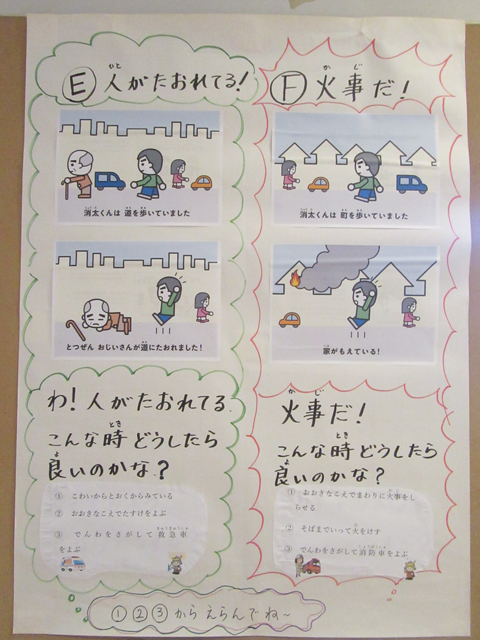 Ⓔ 人がたおれてる!
消太くんは 道を歩いていました
とつぜん おじいさんが道にたおれました!
わ! 人がたおれてる
こんな時 どうしたら
良いのかな?
① こわいからとおくからみている
② おおきなこえでたすけをよぶ
③ でんわをさがして 救急車
をよぶ
Ⓕ 火事だ!
消太くんは 町を歩いていました
家がもえている!
火事だ!
こんな時 どうしたら
良いのかな?
① おおきなこえでまわりに火事をし
らせる
② そばまでいって火をけす
③ でんわをさがして消防車をよぶ
①②③からえらんでね~